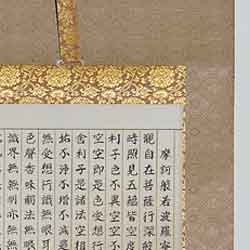 摩訶般若波羅蜜
觀自在菩薩行深般
時照見五蘊皆空度
利子色不異空空不
空空即是色受想行
舍利子是諸法空相
垢不淨不增不減是
無受想行識無眼耳
色聲香味觸法無眼
識界無無明亦無無